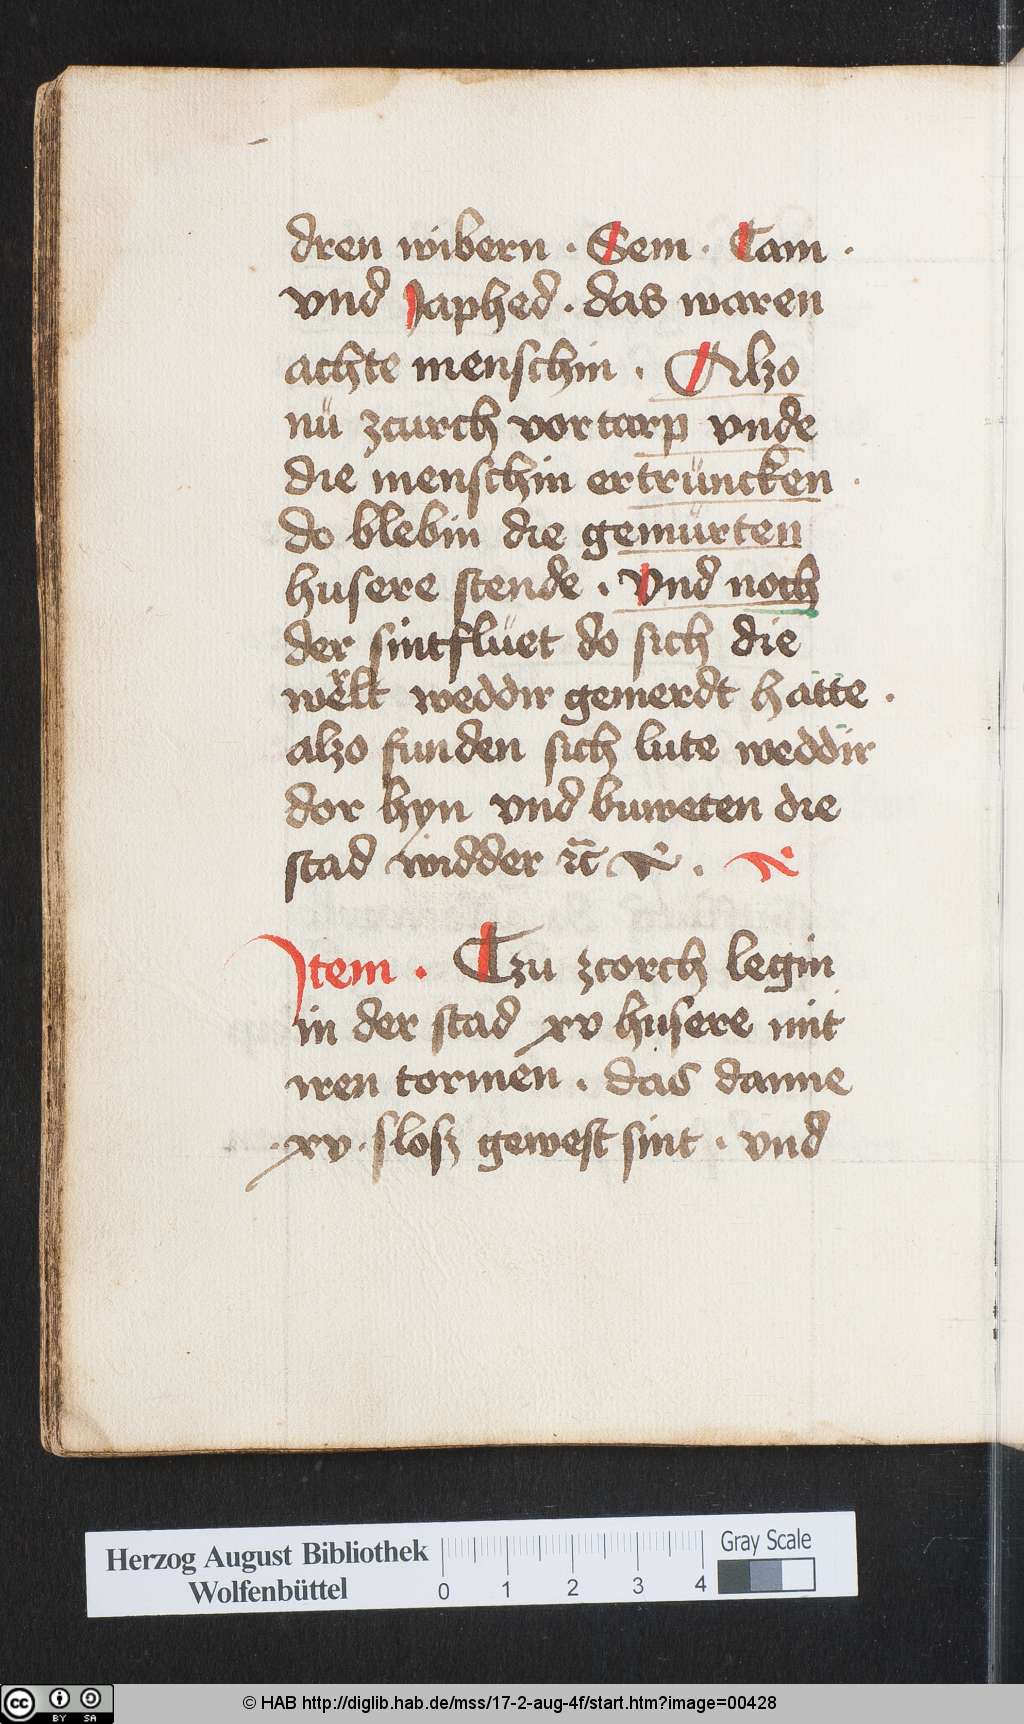 dren wibern · Sem · Cam ·
vnd Japhed · das waren
achte menschin · Alzo
nü zcurch vortarp vnde
die menschin ertrüncken ·
do blebin die gemürten
husere stende · Vnd noch
der sintflüet do sich die
werlt weddir gemerdt hatte ·
alzo funden sich lute weddir
dor hyn vnd buweten die
stad widder
Item · Tzu zcorch legin
in der stad xv husere mit
iren tormen · das danne
· xv · slosz gewest sint · vnd
Herzog August Bibliothek
Wolfenbüttel
0 1 2 3 4
Gray Scale
cc BY SA
© HAB http://diglib.hab.de/mss/17-2-aug-4f/start.htm?image=00428